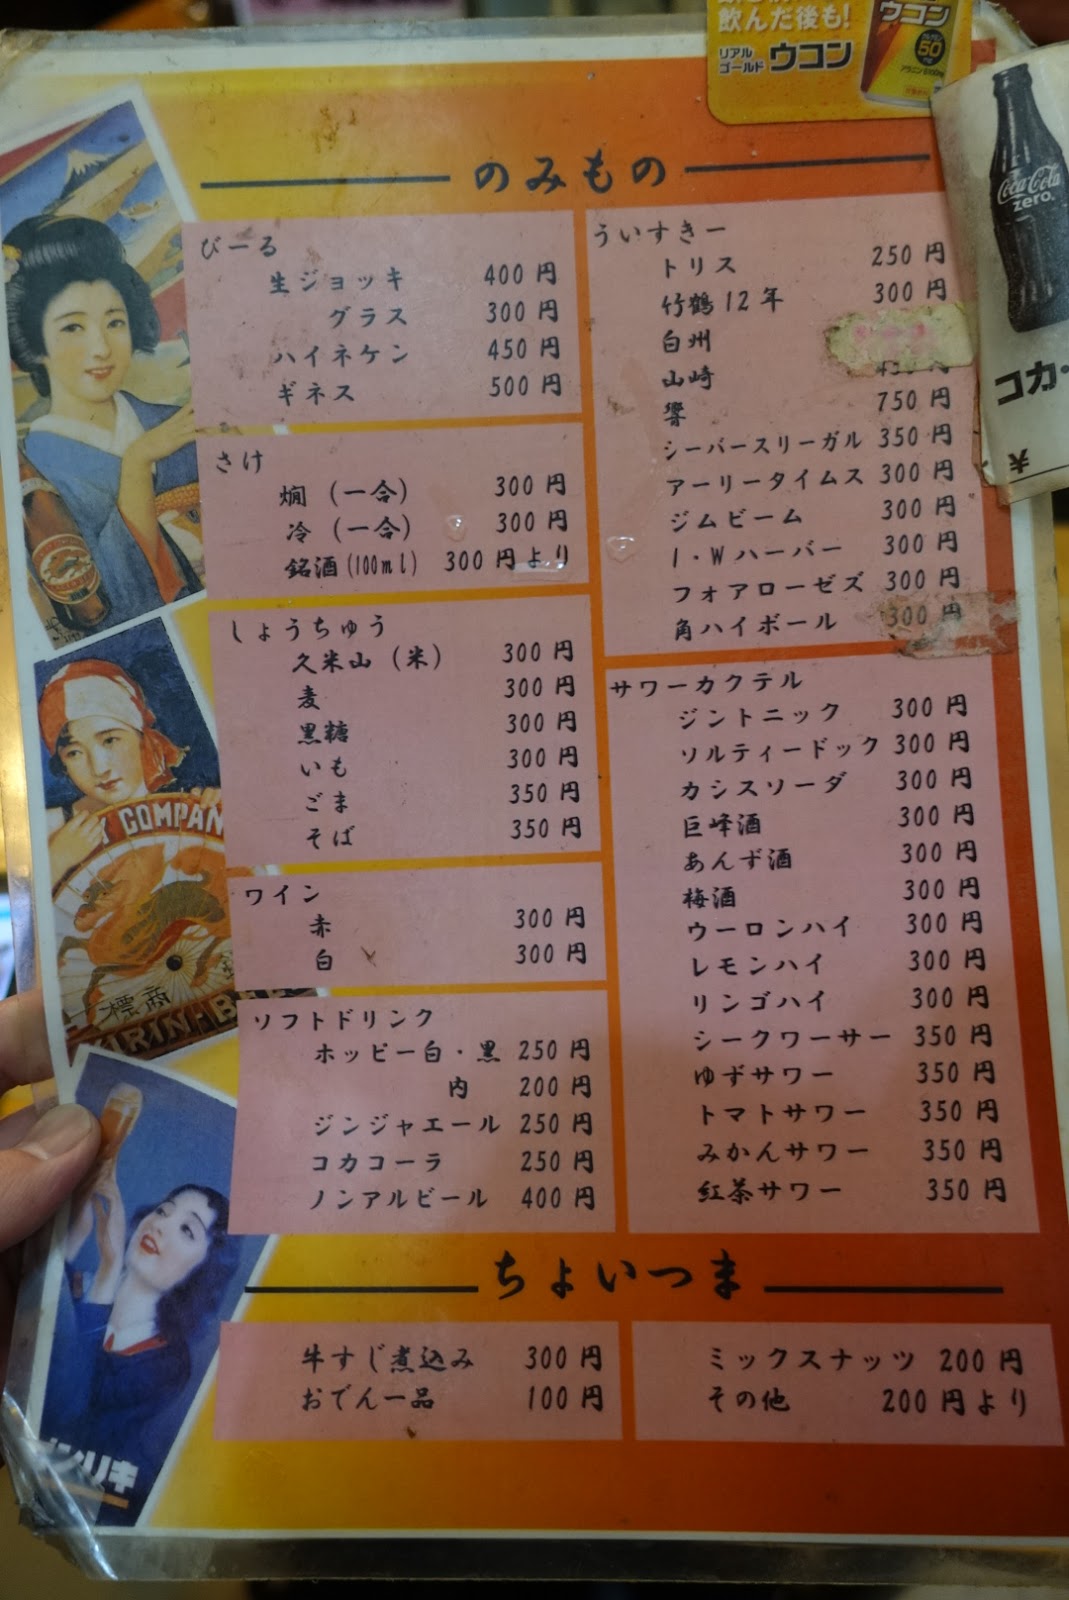 飲んだ後も!
リアル
ゴールド ウコン
ウコン
50
Coca-Cola
zero
コカ・
¥
のみもの
びーる
生ジョッキ 400円
グラス 300円
ハイネケン 450円
ギネス 500円
さけ
燗(一合) 300円
冷(一合) 300円
銘酒(100ml) 300円より
しょうちゅう
久米山(米) 300円
麦 300円
黒糖 300円
いも 300円
ごま 350円
そば 350円
ワイン
赤 300円
白 300円
ソフトドリンク
ホッピー白・黒 250円
内 200円
ジンジャエール 250円
コカコーラ 250円
ノンアルビール 400円
ういすきー
トリス 250円
竹鶴12年 300円
白州
山崎
響 750円
シーバースリーガル 350円
アーリータイムス 300円
ジムビーム 300円
I・Wハーバー 300円
フォアローゼズ 300円
角ハイボール 300円
サワーカクテル
ジントニック 300円
ソルティードック 300円
カシスソーダ 300円
巨峰酒 300円
あんず酒 300円
梅酒 300円
ウーロンハイ 300円
レモンハイ 300円
リンゴハイ 300円
シークワーサー 350円
ゆずサワー 350円
トマトサワー 350円
みかんサワー 350円
紅茶サワー 350円
ちょいつま
牛すじ煮込み 300円
おでん一品 100円
ミックスナッツ 200円
その他 200円より
Y COMPAN
標商
KIRIN BE
ンリキ